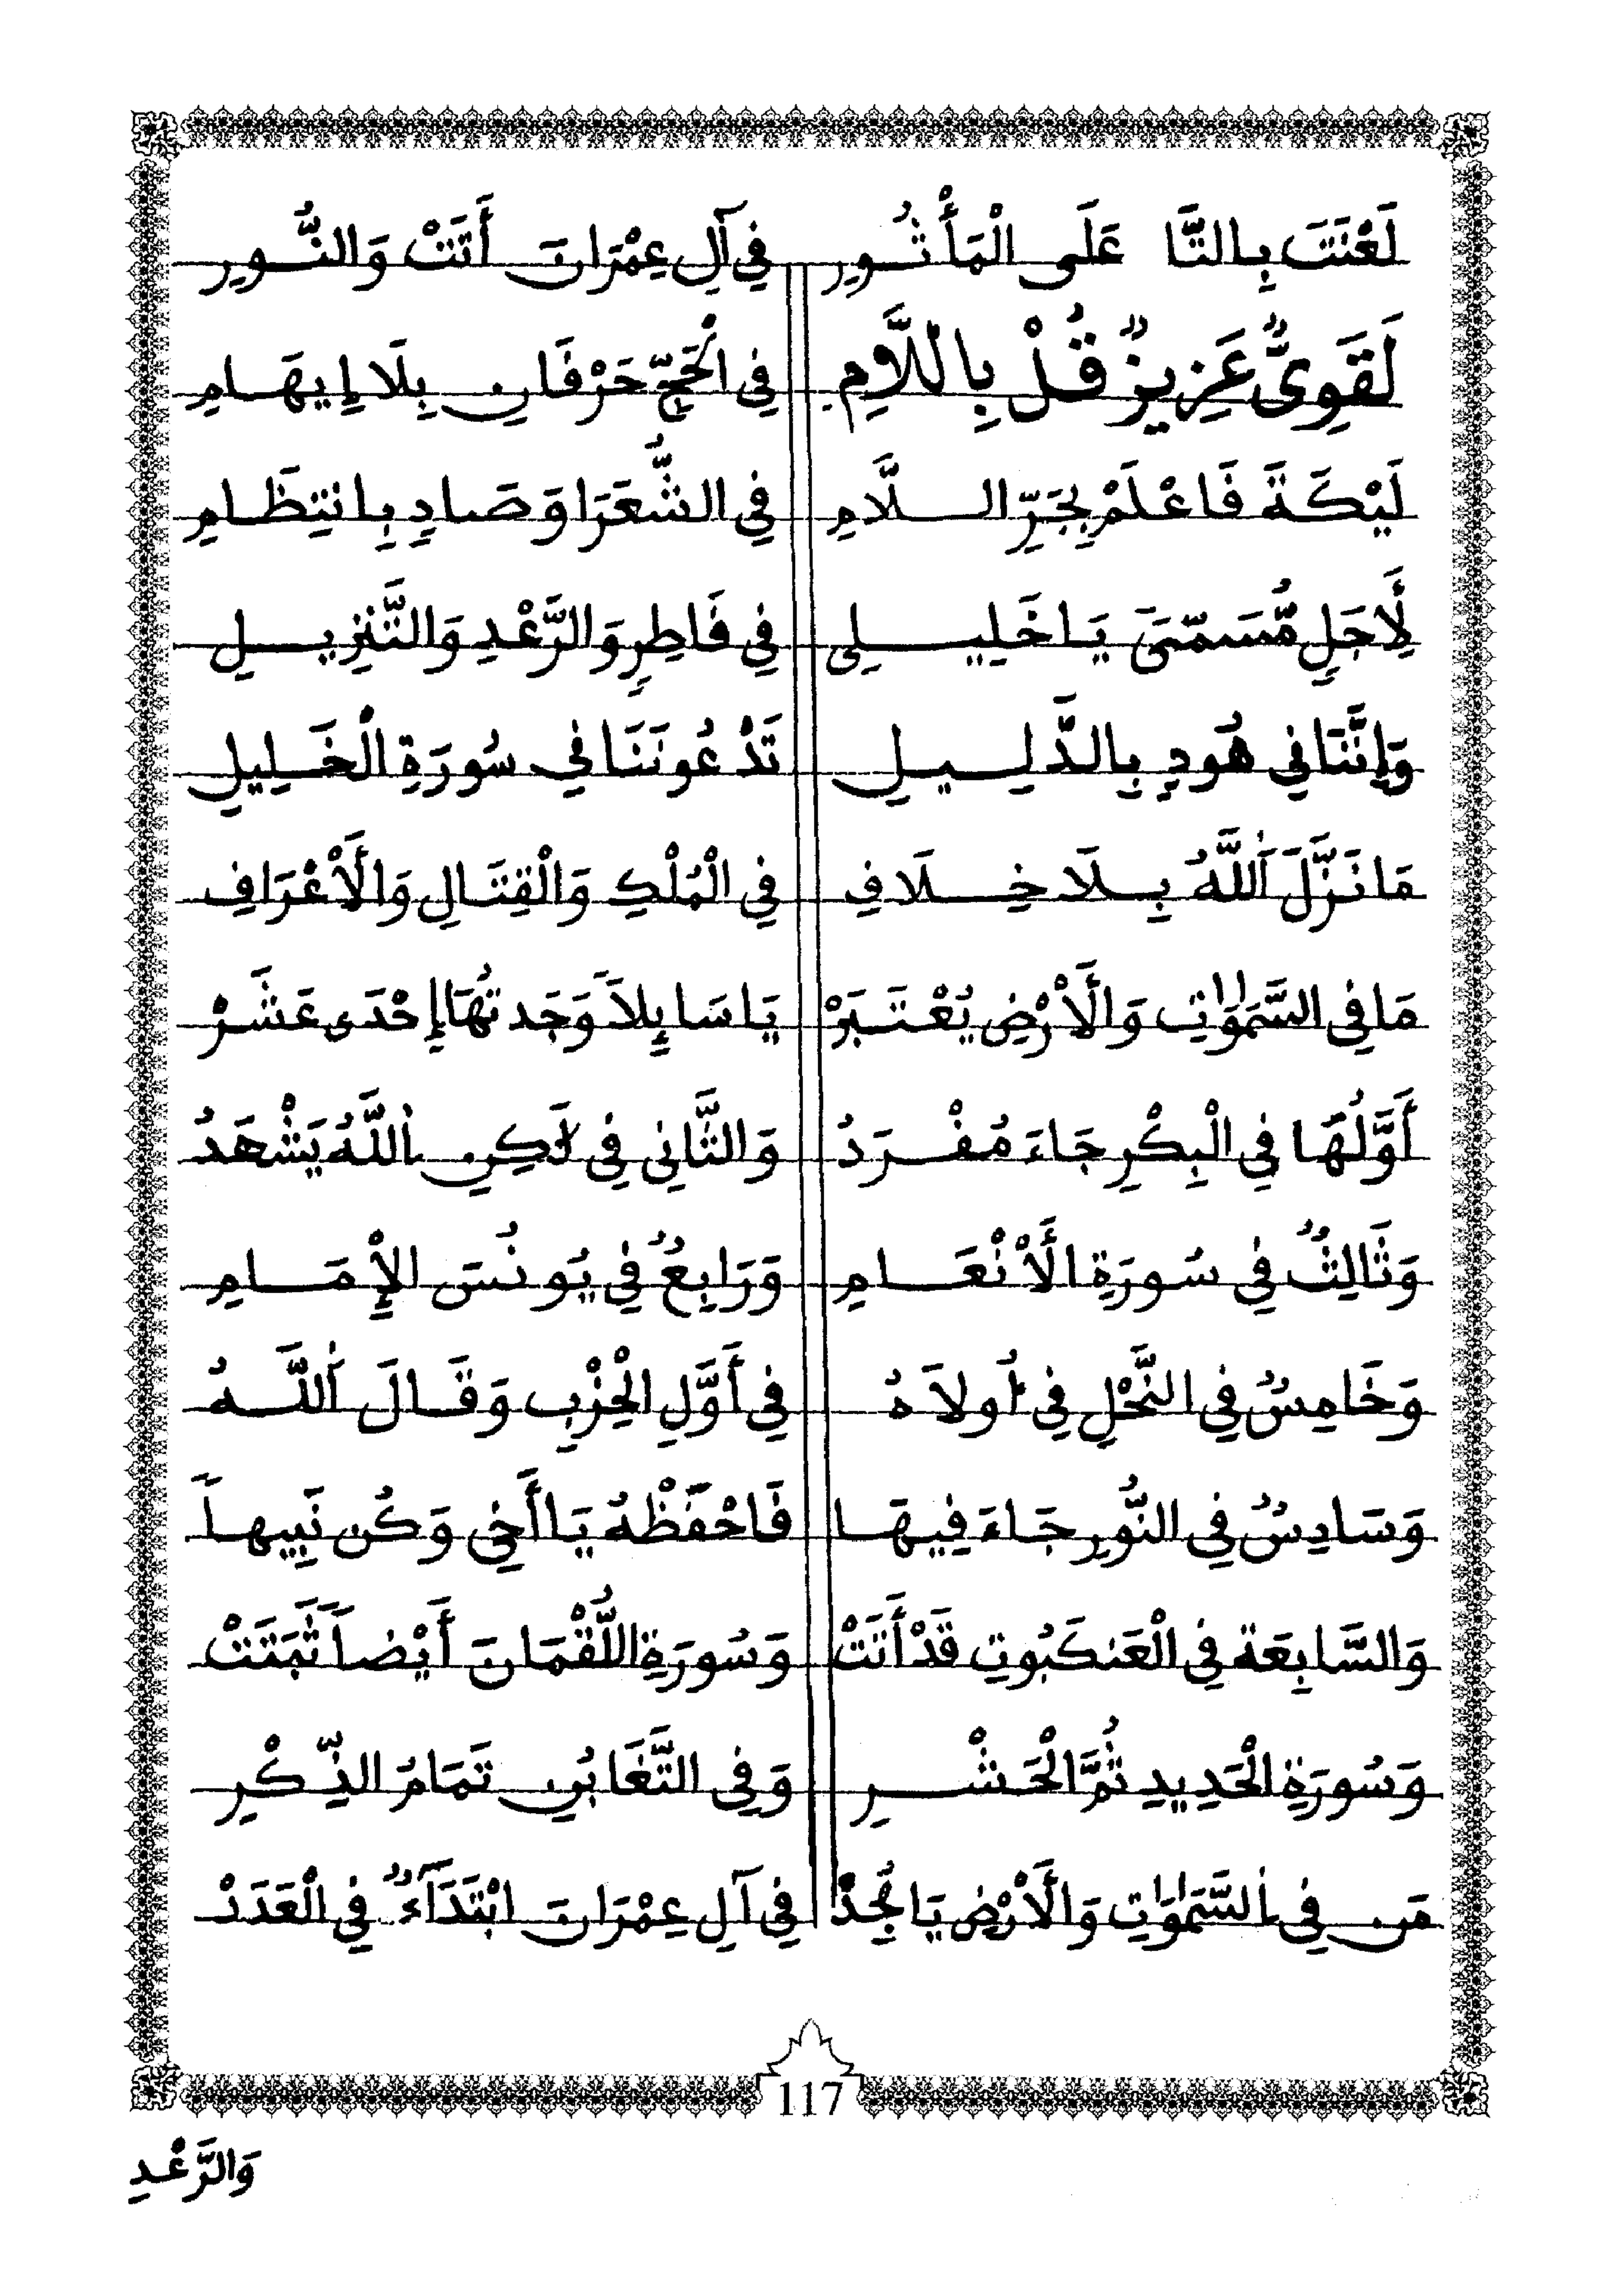 لَعْنَتَ بِالتَّا عَلَى الْمَأْثُورِ فِي آلِ عِمْرَانَ أَتَتْ وَالنُّورِ
لَقَوِىٌّ عَزِيزٌ قُلْ بِاللاَّمِ فِي الْحَجِّ حَرْفَانِ بِلَا إِيهَامِ
لَيْكَةَ فَاعْلَمْ بِجَرِّ اللَّامِ فِي الشُّعَرَا وَصَادٍ بِانتِظَامِ
لِأَجَلٍ مُّسَمًّى يَا خَلِيلِى فِي فَاطِرٍ وَالرَّعْدِ وَالتَّنزِيلِ
وَإِنَّنَا فِي هُودٍ بِالدَّلِيلِ تَدْعُونَنَا فِي سُورَةِ الْخَلِيلِ
مَا نَزَّلَ اَللَّهُ بِلَا خِلَافِ فِي الْمُلْكِ وَالْقِتَالِ وَالْأَعْرَافِ
مَا فِي السَّمَٰوَٰتِ وَالْأَرْضِ يُعْتَبَرْ يَا سَايِلاً وَجَدتُهَا إِحْدَى عَشَرْ
أَوَّلُهَا فِي الْبِكْرِ جَاءَ مُفْرَدُ وَالثَّانِي فِي لَٰكِنِ اللَّهُ يَشْهَدُ
وَثَالِثٌ فِي سُورَةِ الْأَنْعَامِ وَرَابِعٌ فِي يُونُسَ الْإِمَامِ
وَخَامِسٌ فِي النَّحْلِ فِي أُولاَهُ فِي أَوَّلِ الْحِزْبِ وَقَالَ اَللَّهُ
وَسَادِسٌ فِي النُّورِ جَاءَ فِيهَا فَاحْفَظْهُ يَا أَخِي وَكُن نَّبِيهاً
وَالسَّابِعَة فِي الْعَنكَبُوتِ قَدْ أَتَتْ وَسُورَةِ اللُّقْمَانَ أَيْضاً ثَبَتَتْ
وَسُورَةِ الْحَدِيدِ ثُمَّ الْحَشْرِ وَفِي التَّغَابُنِ تَمَامُ الذِّكْرِ
مَن فِي السَّمَٰوَٰتِ وَالْأَرْضِ يَا مُجِدْ فِي آلِ عِمْرَانَ ابْتَدَآءٌ فِي الْعَدَدْ
117
وَالرَّعْدِ